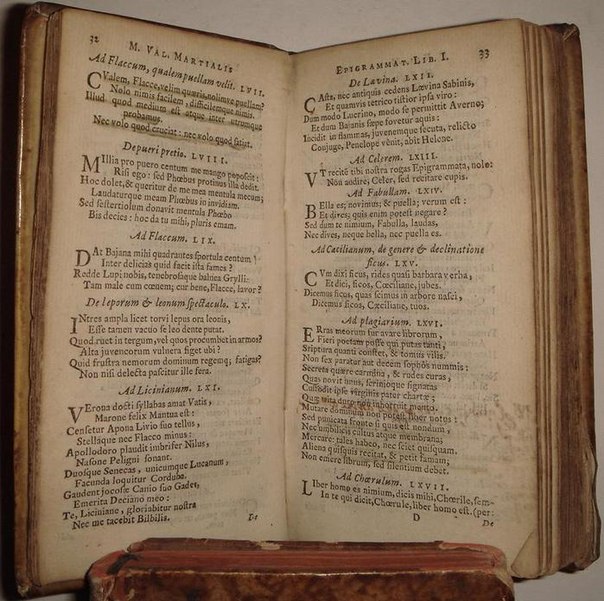 32
M. VAL. MARTIALIS
Ad Flaccum, qualem puellam velit. LVII.
QValem, Flacce, velim quæris, nolimve puellam?
Nolo nimis facilem, difficilemque nimis.
Illud quod medium est atque inter utrumque
probamus.
Nec volo quod cruciat: nec volo quod satiat.
De pueri pretio. LVIII.
MIllia pro puero centum me mango poposcit:
Risi ego: sed Phœbus protinus illa dedit.
Hoc dolet, & queritur de me mea mentula mecum;
Laudaturque meam Phœbus in invidiam.
Sed sestertiolum donavit mentula Phœbo
Bis decies: hoc da tu mihi, pluris emam.
Ad Flaccum. LIX.
DAt Bajana mihi quadrantes sportula centum:
Inter delicias quid facit ista fames?
Redde Lupi nobis, tenebrosaque balnea Grylli:
Tam male cum cœnem; cur bene, Flacce, lavor?
De leporum & leonum spectaculo. LX.
INtres ampla licet torvi lepus ora leonis,
Esse tamen vacuo se leo dente putat.
Quod ruet in tergum, vel quos procumbet in armos?
Alta juvencorum vulnera figet ubi?
Quid frustra nemorum dominum regemq; fatigas?
Non nisi delecta pascitur ille fera.
Ad Licinianum. LXI.
VErona docti syllabas amat Vatis,
Marone felix Mantua est:
Censetur Apona Livio suo tellus,
Stellâque nec Flacco minus:
Apollodoro plaudit imbrifer Nilus,
Nasone Peligni sonant.
Duosque Senecas, unicumque Lucanum,
Facunda loquitur Corduba.
Gaudent jocosæ Canio suo Gades,
Emerita Deciano meo:
Te, Liciniane, gloriabitur nostra
Nec me tacebit Bilbilis.
De
EPIGRAMMAT. LIB. I.
33
De Lævina. LXII.
CAsta, nec antiquis cedens Lævina Sabinis,
Et quamvis tetrico tristior ipsa viro:
Dum modo Lucrino, modo se permittit Averno;
Et dum Bajanis sæpe fovetur aquis:
Incidit in flammas, juvenemque secuta, relicto
Conjuge, Penelope vênit, abit Helene.
Ad Celerem. LXIII.
VT recitê tibi nostra rogas Epigrammata, nolo:
Non audire, Celer, sed recitare cupis.
Ad Fabullam. LXIV.
BElla es; novimus; & puella; verum est:
Et dives; quis enim potest negare?
Sed dum te nimium, Fabulla, laudas,
Nec dives, neque bella, nec puella es.
Ad Cæcilianum, de genere & declinatione
ficus. LXV.
CVm dixi ficus, rides quasi barbara verba,
Et dici, ficos, Cœciliane, jubes.
Dicemus ficus, quas scimus in arbore nasci,
Dicemus ficos, Cæciliane, tuos.
Ad plagiarium. LXVI.
ERras meorum fur avare librorum,
Fieri poetam posse qui putas tanti,
Scriptura quanti constet, & tomus vilis.
Non sex paratur aut decem sophos nummis:
Secreta quære carmina, & rudes curas,
Quas novit unus, scrinioque signatas
Custodit ipse virginis pater chartæ,
Quæ trita duro non inhorruit mento.
Mutare dominum non potest liber notus:
Sed pumicata fronte si quis est nondum,
Nec umbilicis cultus atque membrana;
Mercare: tales habeo, nec sciet quisquam.
Aliena quisquis recitat, & petit famam,
Non emere librum, sed silentium debet.
Ad Chœrulum. LXVII.
LIber homo es nimium, dicis mihi, Chœrile, sem-
In te qui dicit, Chœrule, liber homo est. (per:
D
De